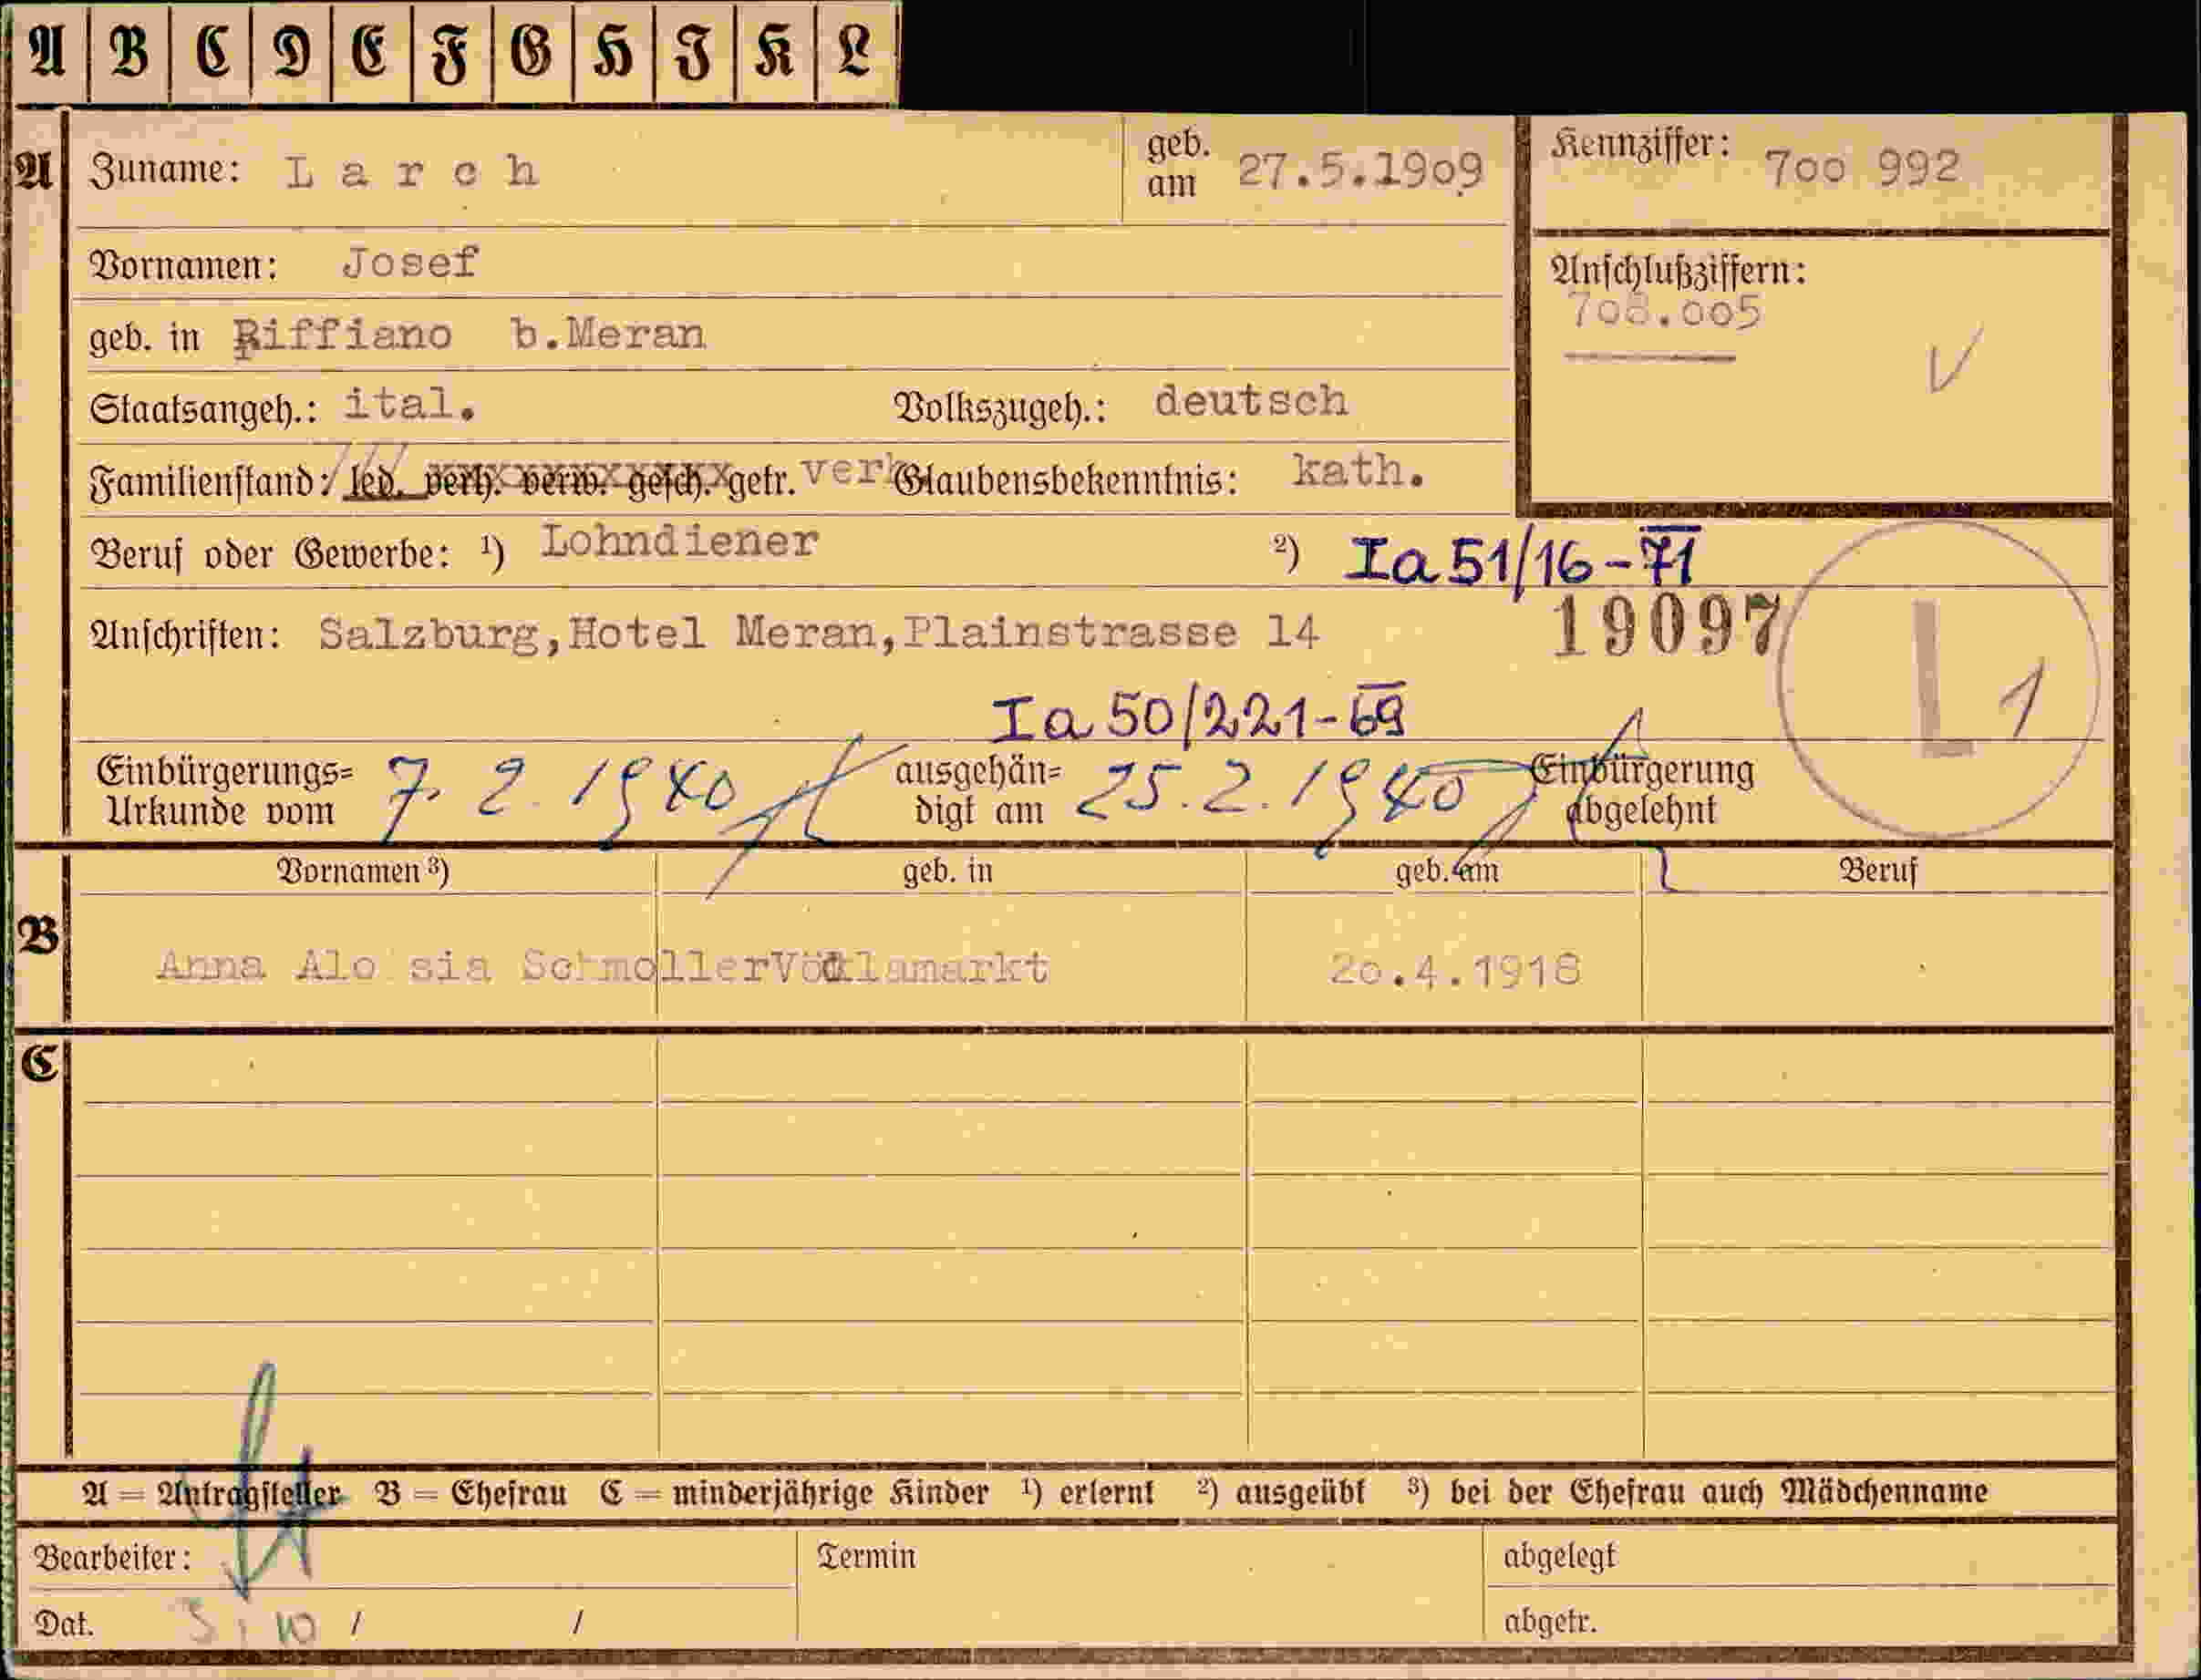 A B C D E F G H J K L
A Zuname: Larch geb. am 27.5.1909 Kennziffer: 700 992
Vornamen: Josef Anschlußziffern:
708.005
geb. in Riffiano b.Meran
Staatsangeh.: ital. Volkszugeh.: deutsch
Familienstand: led. verh. verw. gesch. getr. verh Glaubensbekenntnis: kath.
Beruf oder Gewerbe: ¹) Lohndiener ²) Ia 51/16-71
Anschriften: Salzburg,Hotel Meran,Plainstrasse 14 19097
L 1
Ia 50/221-69
Einbürgerungs= Urkunde vom 7. 2. 1940 ausgehän= digt am 25.2.1940 Einbürgerung abgelehnt
Vornamen ³) geb. in geb. am Beruf
B Anna Aloisia Schmoller Vöcklamarkt 20.4.1918
C
A = Antragsteller B = Ehefrau C = minderjährige Kinder ¹) erlernt ²) ausgeübt ³) bei der Ehefrau auch Mädchenname
Bearbeiter: Termin abgelegt
Dat. / / abgetr.